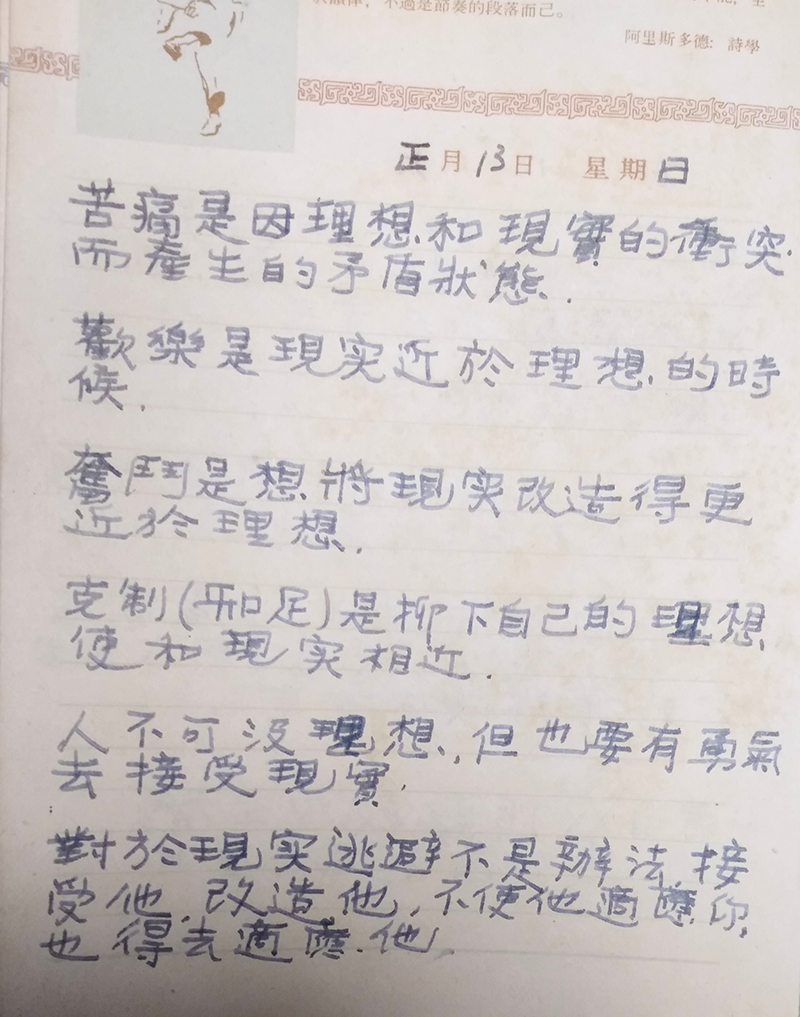 不過是節奏的段落而己。
阿里斯多德：詩學
正月13日　星期日
苦痛是因理想和現實的衝突
而產生的矛盾狀態.
歡樂是現实近於理想的時
候.
奮鬥是想將現实改造得更
近於理想.
克制(和足)是抑下自己的理想
使和現实相近.
人不可没理想,但也要有勇氣
去接受現實.
對於現实逃避不是辦法,接
受他,改造他,不使他適應你,
也得去適應他.